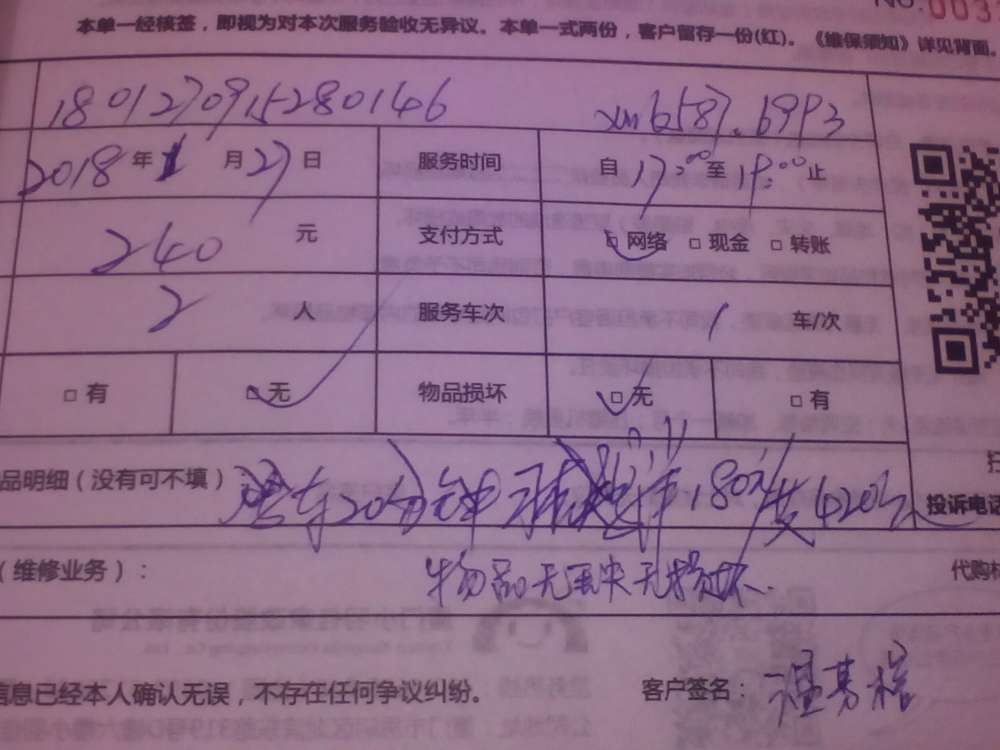 NO.003
本单一经核签，即视为对本次服务验收无异议。本单一式两份，客户留存一份(红)。《维保须知》详见背面。
1801270915280146
2018年1月27日 服务时间 自17:00至19:00止
240元 支付方式 □网络 □现金 □转账
2人 服务车次 1车/次
□有 □无 物品损坏 □无 □有
品明细（没有可不填）： 投诉电话
（维修业务）： 物品无丢失无损坏. 代购材
信息已经本人确认无误，不存在任何争议纠纷。 客户签名：